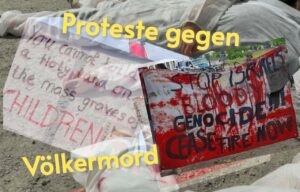 Proteste gegen
You cannot build
a Holy Land on
the mass graves of
CHILDREN
STOP ISRAEL'S
BLOODY
GENOCIDE!!
CEASEFIRE NOW
Völkermord